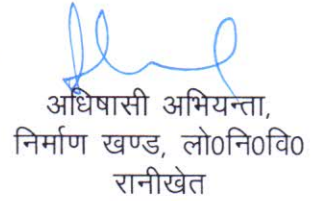 अधिषासी अभियन्ता,
निर्माण खण्ड, लो0नि0वि0
रानीखेत